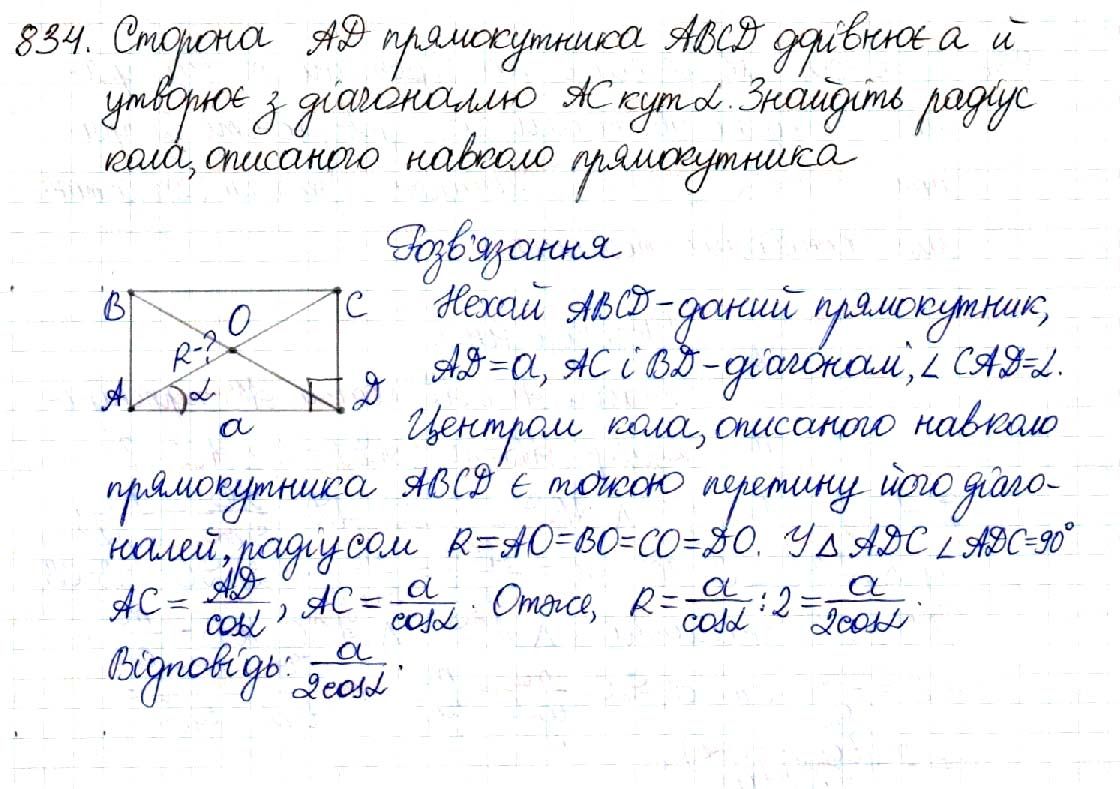 834. Сторона AD прямокутника ABCD дорівнює a й
утворює з діагоналлю AC кут α. Знайдіть радіус
кола, описаного навколо прямокутника
Розв'язання
B
O
C
R-?
A
α
D
a
Нехай ABCD – даний прямокутник,
AD = a, AC і BD – діагоналі, ∠ CAD = α.
Центром кола, описаного навколо
прямокутника ABCD є точкою перетину його діаго-
налей, радіусом R = AO = BO = CO = DO. У △ ADC ∠ ADC = 90°
AC = AD/cosα, AC = a/cosα. Отже, R = a/cosα : 2 = a/2cosα.
Відповідь: a/2cosα.